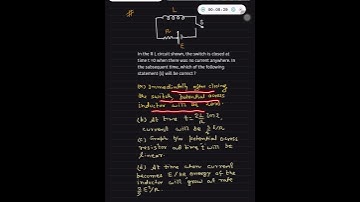 #
L
00:05:29
S
R
E
In the R L circuit shown, the switch is closed at
time t =0 when there was no current anywhere. In
the subsequent time, which of the following
statement (s) will be correct ?
(a) Immediately after closing
the switch, potential across
inductor will be
(b) At time t = 2L/R ln 2,
current will be
(c) Graph for potential across
resistor and time 't' will be
linear.
(d) At time when current
becomes E/3R energy of the
inductor will grow at rate
2/9 E²/R.